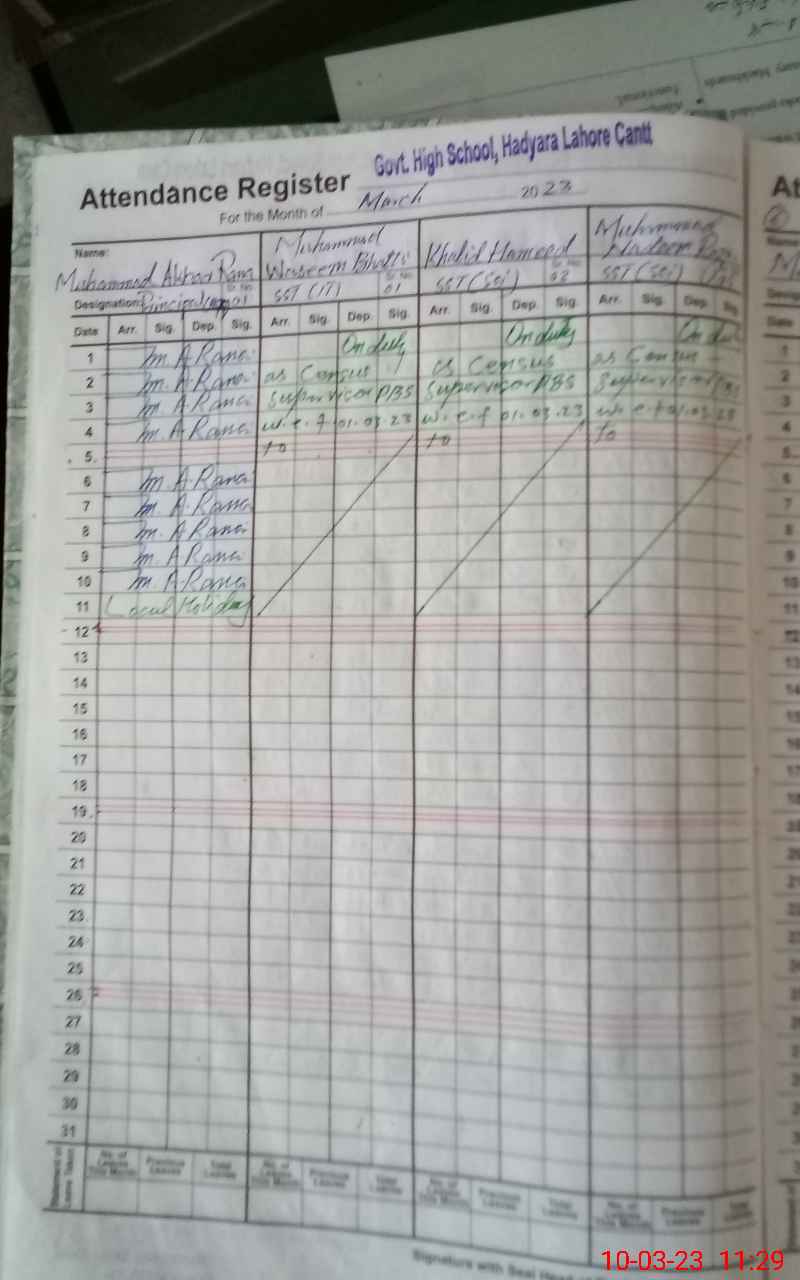 Govt. High School, Hadyara Lahore Cantt
Attendance Register
For the Month of March 2023
Name:
Muhammad
Muhammad
Waseem Bhatti
Khalid Hameed
Nadeem
Designation: Principal
Sr No 01
SST (IT)
Sr No 01
SST (Sci)
Sr No 02
SST (Sci)
Date Arr. Sig. Dep. Sig. Arr. Sig. Dep. Sig. Arr. Sig. Dep. Sig. Arr. Sig. Dep. Sig
1 M. A Rana On duty On duty
2 M. A Rana as Census as Census as Census
3 M. A Rana Supervisor PBS Supervisor PBS Supervisor
4 M. A Rana w.e.f 01.03.23 w.e.f 01.03.23 w.e.f 01.03.23
5. to to to
6 M. A Rana
7 M. A Rana
8 M. A Rana
9 M. A Rana
10 M. A Rana
11 Local Holiday
12
13
14
15
16
17
18
19
20
21
22
23
24
25
26
27
28
29
30
31
No. of Leaves This Month Previous Leaves Total Leaves No. of Leaves This Month Previous Leaves Total Leaves No. of Leaves This Month Previous Leaves Total Leaves No. of Leaves This Month Previous Leaves Total Leaves
Signature with Seal
10-03-23 11:29